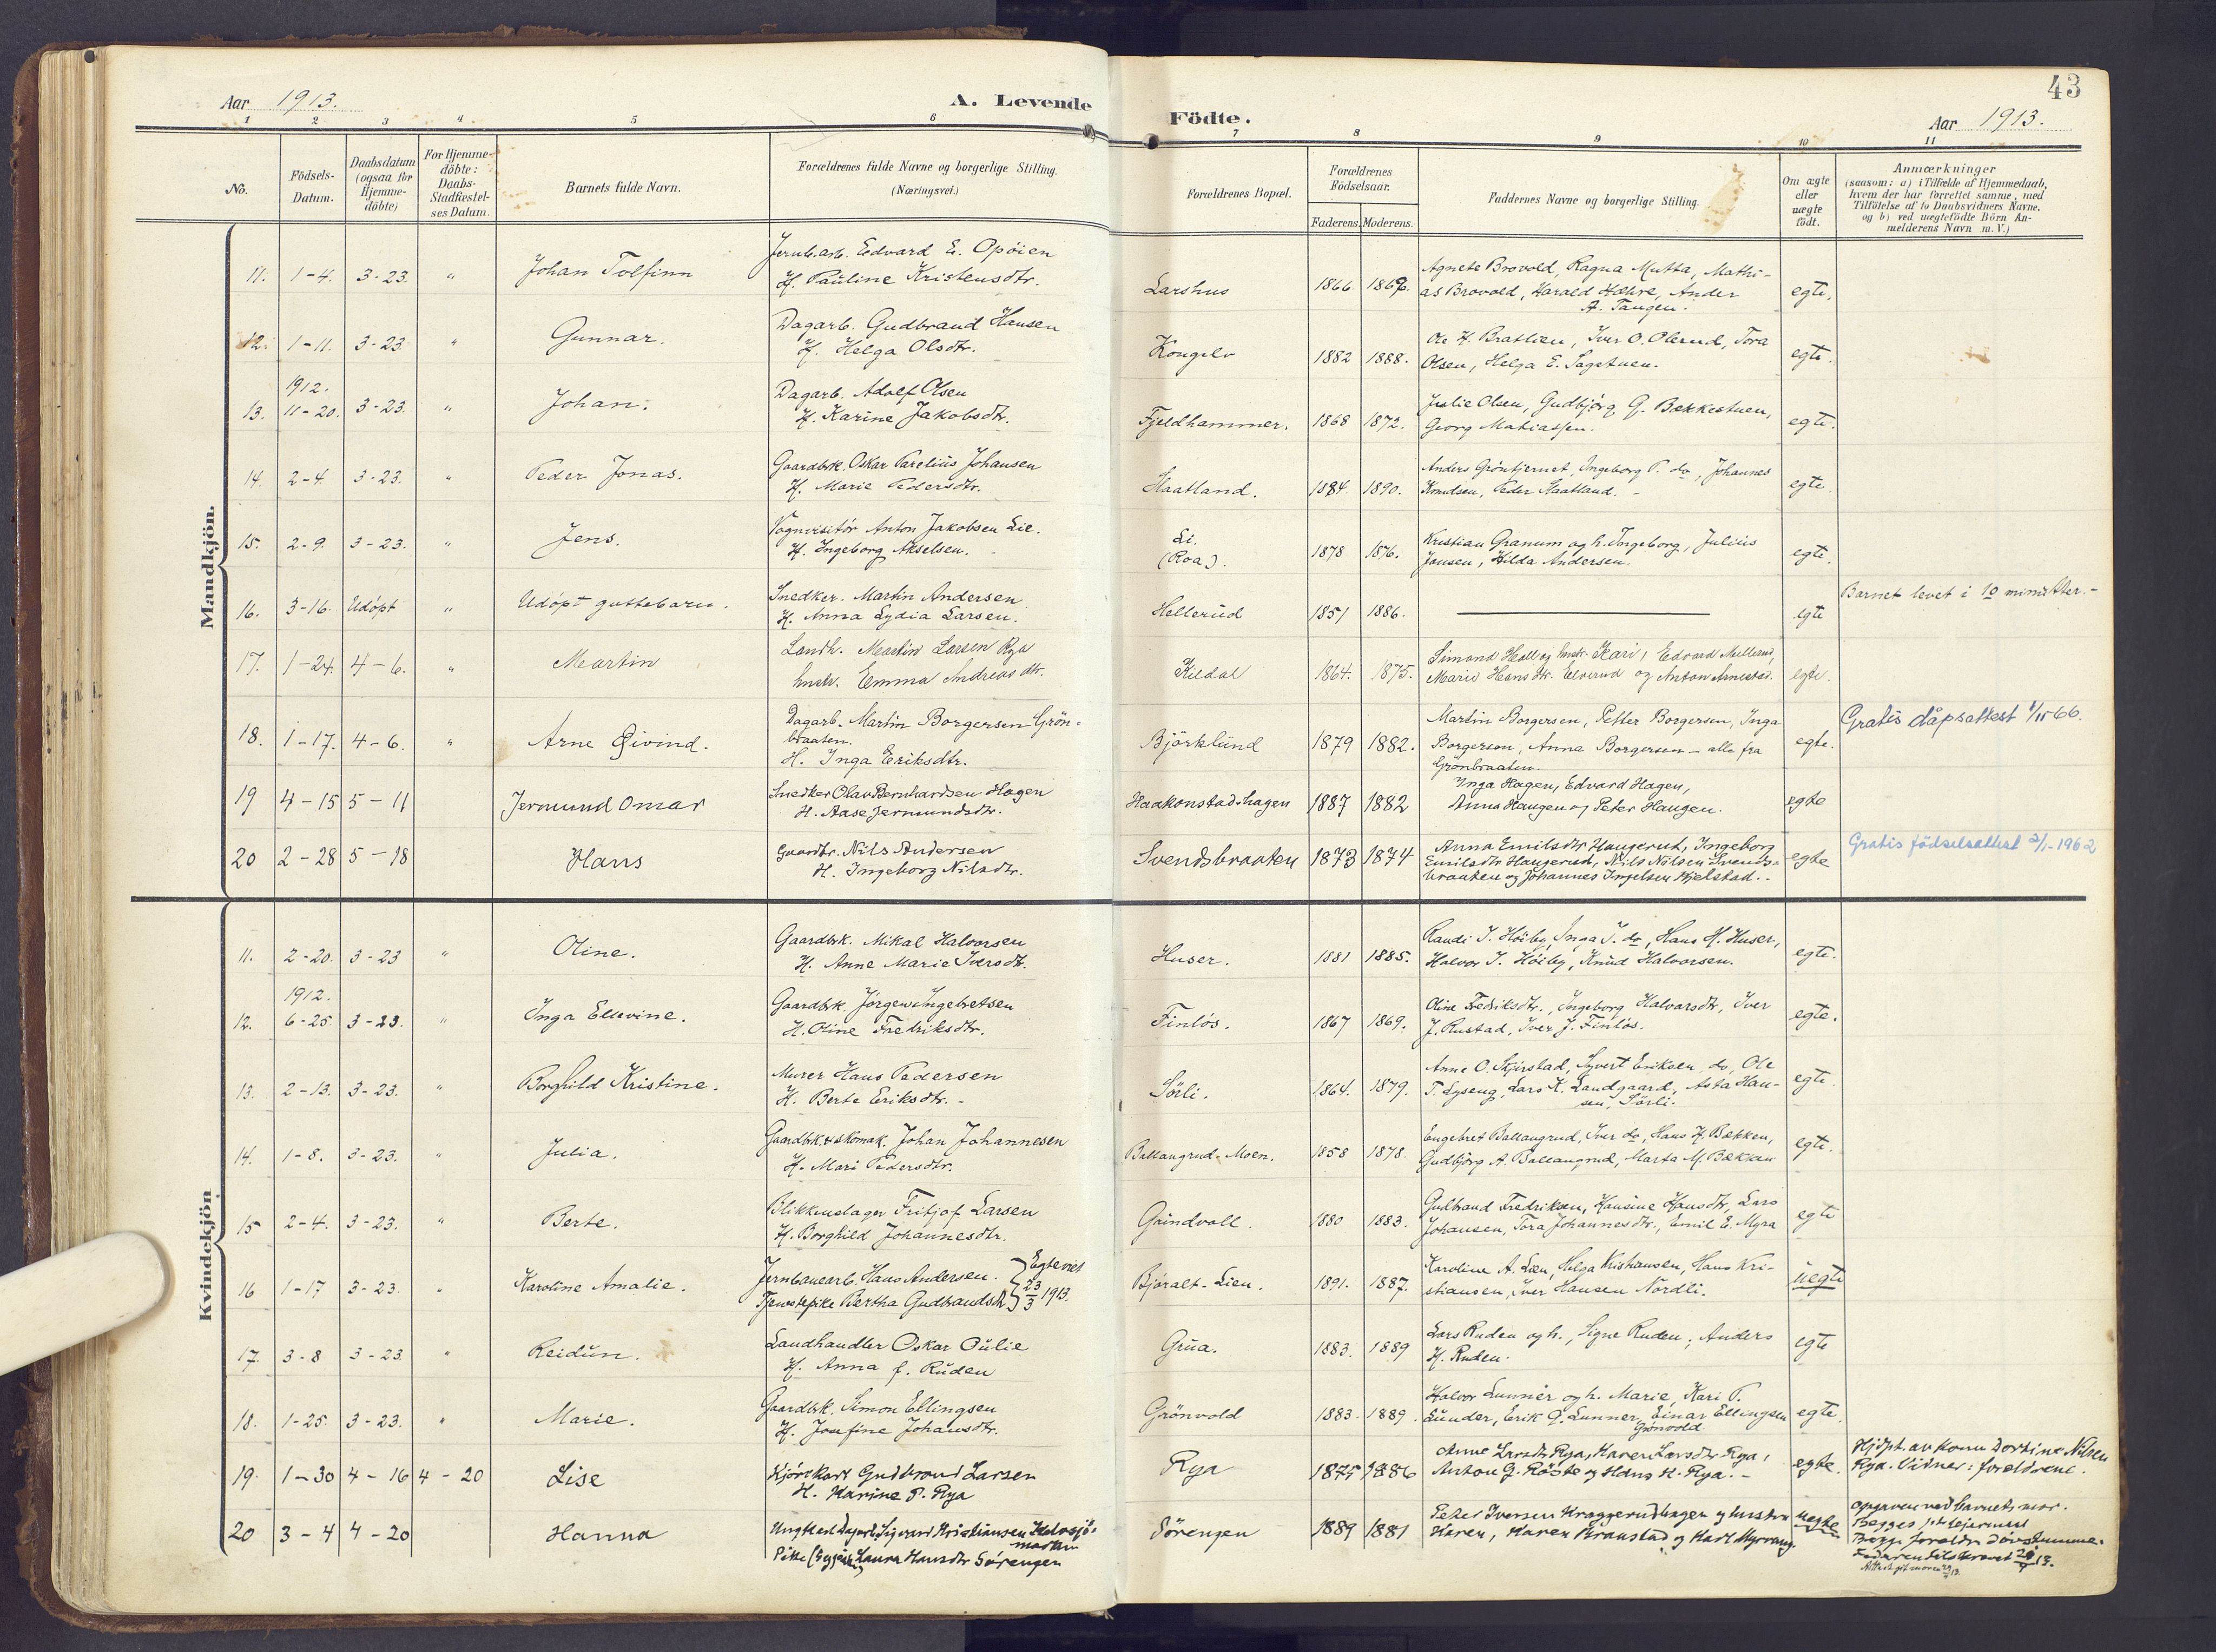 43
Aar 1913.
A. Levende
Födte.
Aar 1913.
1 2 3 4 5 6 7 8 9 10 11
No.
Födsels-
Datum.
Daabsdatum
(ogsaa for
Hjemme-
döbte)
For Hjemme-
döbte:
Daabs-
Stadfæstel-
ses Datum.
Barnets fulde Navn.
Forældrenes fulde Navne og borgerlige Stilling.
(Næringsvei.)
Forældrenes Bopæl.
Forældrenes
Födselsaar.
Faderens. Moderens.
Faddernes Navne og borgerlige Stilling.
Om ægte
eller
uægte
födt.
Anmærkninger
(saasom: a) i Tilfælde af Hjemmedaab,
hvem der har forrettet samme, med
Tilföielse af to Daabsvidners Navne,
og b) ved uægtefödte Börn An-
melderens Navn m. V.)
Mandkjön.
11. 1-4. 3-23. " Johan Tolfinn
Jernb.arb. Edvard E. Opöien
H. Pauline Kristensdtr.
Larshus 1866 1869.
Agnete Brovold, Ragna Mutta, Mathi-
as Brovold, Harald Hæhre, Ander
A. Tangen.
egte.
12. 1-11. 3-23 " Gunnar.
Dagarb. Gudbrand Hansen
H. Helga Olsdtr.
Kongelv 1882 1888.
Ole H. Bratlien, Iver O. Olerud, Tora
Olsen, Helga E. Sagstuen.
egte.
1912.
13. 11-20. 3-23. " Johan.
Dagarb. Adolf Olsen
H. Karine Jakobsdtr.
Fjeldhammer. 1868 1872.
Julie Olsen, Gudbjörg G. Bækkestuen,
Georg Matiassen.
egte.
14. 2-4. 3-23. " Peder Jonas.
Gaardbrk. Oskar Parelius Johansen
H. Marie Pedersdtr.
Haatland. 1884. 1890.
Anders Gröntjernet, Ingeborg P. do, Johannes
Knudsen, Peder Haatland.
egte.
15. 2-9. 3-23. " Jens.
Vognvisitör Anton Jakobsen Lie.
H. Ingeborg Akselsen.
Li.
(Roa). 1878 1876.
Kristian Granum og h. Ingeborg, Julius
Jonsen, Hilda Andersen.
egte.
16. 3-16. Udöpt " Udöpt guttebarn.
Snedker. Martin Andersen
H. Anna Lydia Larsen.
Hellerud 1851 1886.
egte
Barnet levet i 10 minutter.-
17. 1-24. 4-6. " Martin
Landh. Martin Larsen Rya
hustr. Emma Andreasdtr.
Kildal 1864. 1875.
Simond Hall og hustr. Kari, Edvard Mellerud,
Marie Hansdtr. Elverud og Anton Arnestad.
egte.
18. 1-17. 4-6. " Arne Eivind.
Dagarb. Martin Borgersen Grön-
braaten.
H. Inga Eriksdtr.
Björklund 1879 1882.
Martin Borgersen, Petter Borgersen, Inga
Borgersen, Anna Borgersen - alle fra
Grönbraaten.
egte.
Gratis dåpsattest 1/11 66.
19 4-15 5-11 Jermund Omar
Snedker Olav Bernhardsen Hagen
H. Aase Jermundsdtr.
Haakonstadshagen 1887 1882
Inga Hagen, Edvard Hagen,
Anna Haugen og Peter Haugen.
egte
20 2-28 5-18 Hans
Gaardbr. Nils Andersen
H. Ingeborg Nilsdtr.
Svendsbraaten 1873 1874
Anna Emilsdtr Haugerud, Ingeborg
Emilsdtr Haugerud, Nils Nilsen Svends-
braaten og Johannes Ingelsen Kjelstad.
egte
Gratis födselsattest 3/1-1962
Kvindekjön
11. 2-20. 3-23 " Oline.
Gaardbrk. Mikal Halvorsen
H. Anne Marie Iversdtr.
Huser. 1881 1885.
Randi I. Höiby, Inga I. do, Hans H. Huser,
Halvor I. Höiby, Knud Halvorsen.
egte.
1912.
12. 6-25 3-23. " Inga Ellevine.
Gaardbrk. Jörgen Ingebretsen
H. Oline Fredriksdtr.
Finlös. 1867 1869.
Oline Fredriksdtr., Ingeborg Halvorsdtr, Iver
J. Rustad, Iver J. Finlös.
egte.
13. 2-13. 3-23. " Borghild Kristine.
Murer Hans Pedersen
H. Berte Eriksdtr.-
Sörli. 1864. 1879.
Anne O. Skjerstad, Syvert Eriksen do, Ole
T. Lyseng, Lars K. Landgaard, Asta Han-
sen, Sörli.
egte.
14. 1-8. 3-23. " Julia.
Gaardbk. & skomak. Johan Johannesen
H. Mari Pedersdtr.
Ballangrud-Moen. 1858 1878.
Engebret Ballangrud, Iver do, Hans H. Bækken,
Gudbjörg A. Ballangrud, Marta M. Bækken
egte.
15 2-4. 3-23. " Berte.
Blikkenslager Fritjof Larsen
H. Borghild Johannesdtr.
Grindvoll. 1880 1883.
Gulbrand Fredriksen, Hansine Hansdtr, Lars
Johansen, Tora Johannesdtr, Emil E. Myra
egte
16 1-17 3-23. " Karoline Amalie.
Jernbanearb. Hans Andersen.
Tjenestepike Bertha Gudbrandsdtr
Egteviet
23/3 1913.
Björalt-Lien. 1891. 1887.
Karoline A. Lien, Helga Kristiansen, Hans Kri-
stiansen, Iver Hansen Nordli.
uegte
17. 3-8 3-23. " Reidun.
Landhandler Oskar Oulie
H. Anna f. Ruden
Grua. 1883. 1889
Lars Ruden og h., Signe Ruden; Anders
H. Ruden.
egte
18. 1-25. 3-23. " Marie.
Gaardbk. Simon Ellingsen
H. Josefine Johansdtr.
Grönvold 1883. 1889.
Halvor Lunner og h. Marie, Kari P.
Lunder, Erik G. Lunner, Einar Ellingsen
Grönvold
egte.
19. 1-30 4-16 4-20 Lise
Kjörekarl Gudbrand Larsen
H. Karine P. Rya
Rya 1875 1886
Anne Larsdtr Rya, Karen Larsdtr Rya,
Anton G. Röste og Hans H. Rya.-
egte.
Hjdöpt av kone Dortine Nilsen
Rya. Vidner: foreldrene.
20 3-4 4-20 Hanna
Ungkarl Dagarb. Sigvard Kristiansen
marken
Pike Laura Hansdtr Sörengen
Sörengen 1889 1881
Peter Iversen Kraggerudhagen og hustru
Karen, Karen Branstad og Karl Myrvang.
uegte
Opgaven ved barnets mor.
Begges
Begge foreldre